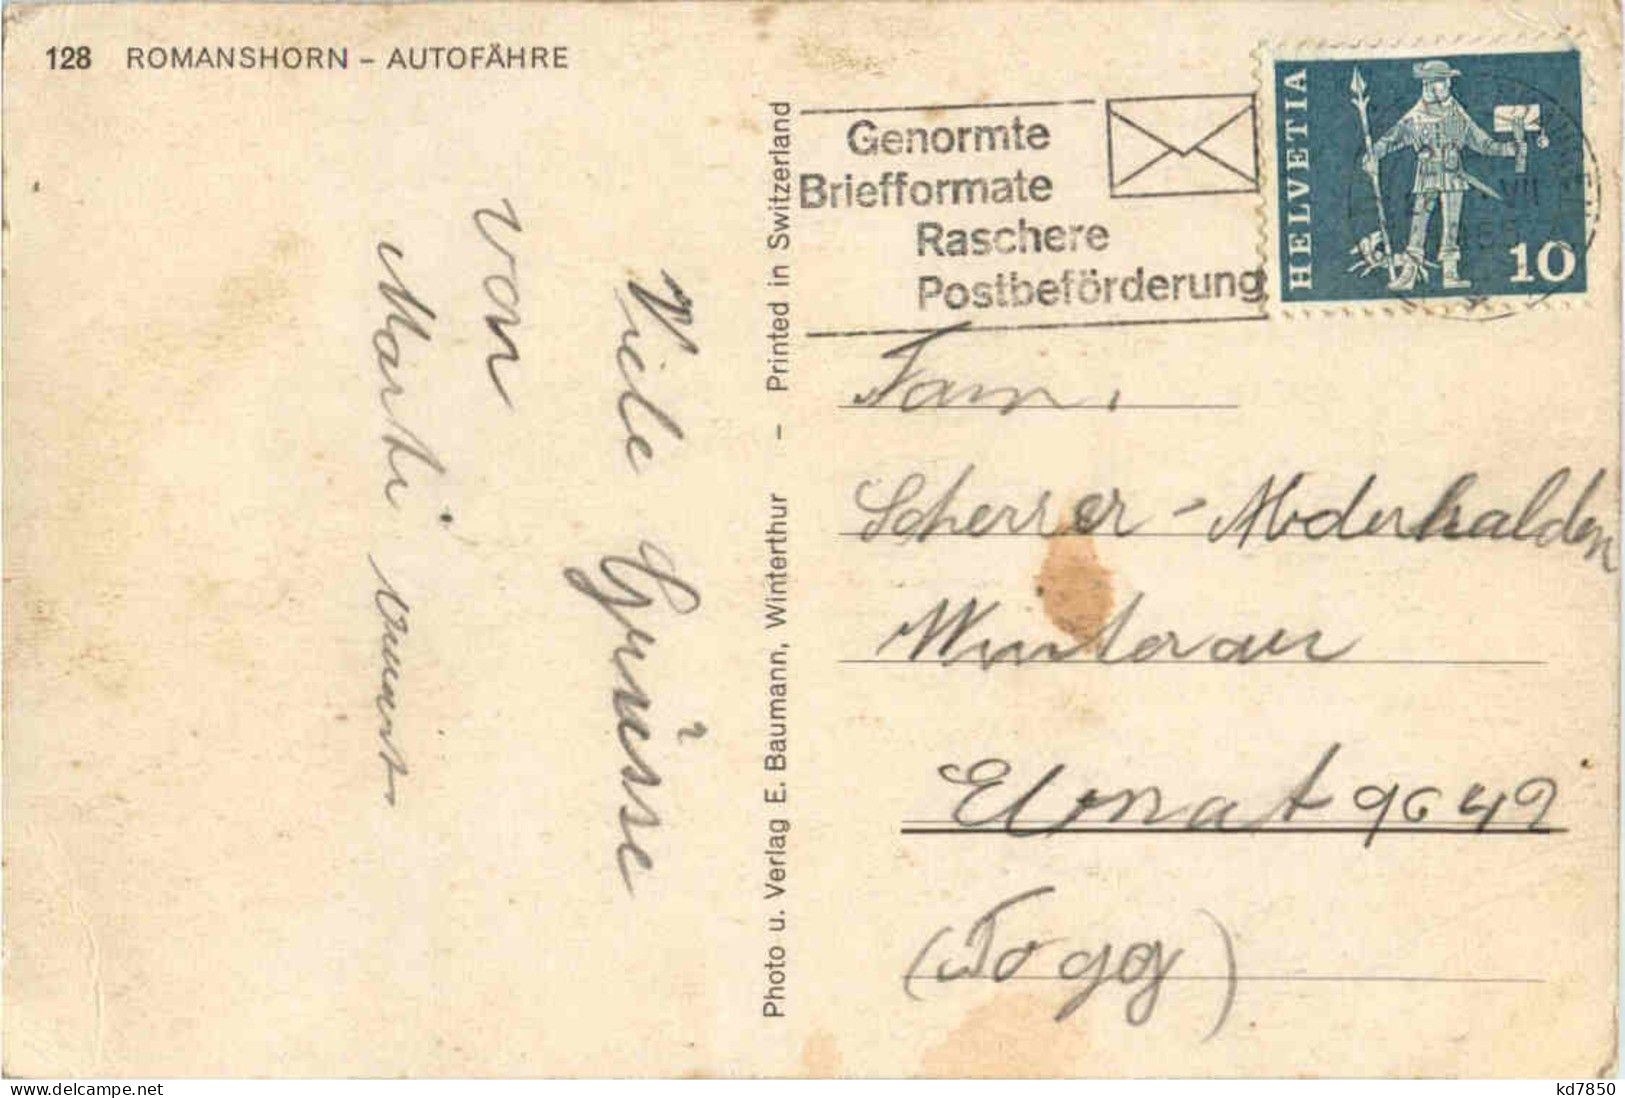 128 ROMANSHORN – AUTOFÄHRE
Viele Grüsse
von
Marti
Photo u. Verlag E. Baumann, Winterthur – Printed in Switzerland
Genormte
Briefformate
Raschere
Postbeförderung
HELVETIA
10
VII
Fam.
Scherrer-Abderhalden
Winterau
Ebnat 9642
(Togg)
www.delcampe.net
kd7850